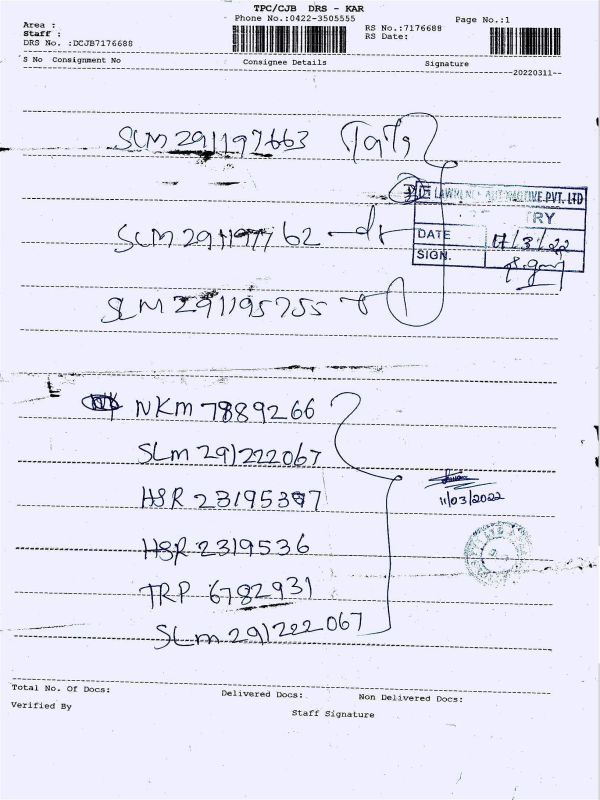 TPC/CJB DRS - KAR
Area :
Phone No.:0422-3505555
Page No.:1
Staff :
RS No.:7176688
DRS No. :DCJB7176688
RS Date:
S No Consignment No Consignee Details Signature
20220311
SLM 291197663
LAWRENCE AUTOMOTIVE PVT. LTD
RY
DATE 11/3/22
SIGN.
SLM 291197762
SLM 291195755
NKM 7889266
SLM 291222067
HSR 23195397
11/03/2022
HSR 2319536
TRP 6782931
SLM 291222067
Total No. Of Docs: Delivered Docs: Non Delivered Docs:
Verified By
Staff Signature